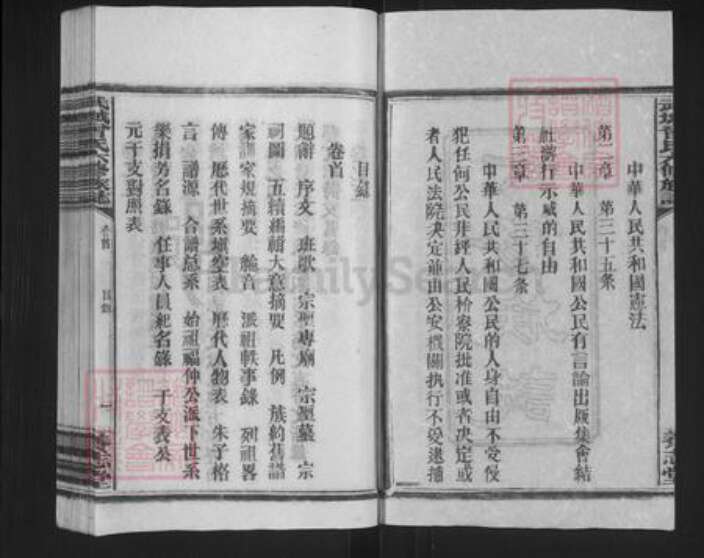 中華人民共和國憲法
第二章 第三十五条
中華人民共和國公民有言論出版集會結
社游行示威的自由
第二章 第三十七条
中華人民共和國公民的人身自由不受侵
犯任何公民非經人民检察院批准或者决定或
者人民法院决定並由公安機關执行不受逮捕
目錄
卷首
題辭 序文 班歌 宗聖專廟 宗聖墓 宗
祠圖 五續編緝大意摘要 凡例 族約舊譜
家訓家規摘要 綸音 派祖軼事錄 列祖畧
傳 歷代世系塡空表 歷代人物表 朱子格
言 譜源 合譜总系 始祖福仲公派下世系
樂捐芳名錄 任事人員紀名錄 干支表公
元干支對照表
武城曾氏六修族譜
卷首 目錄
一
FamilySearch